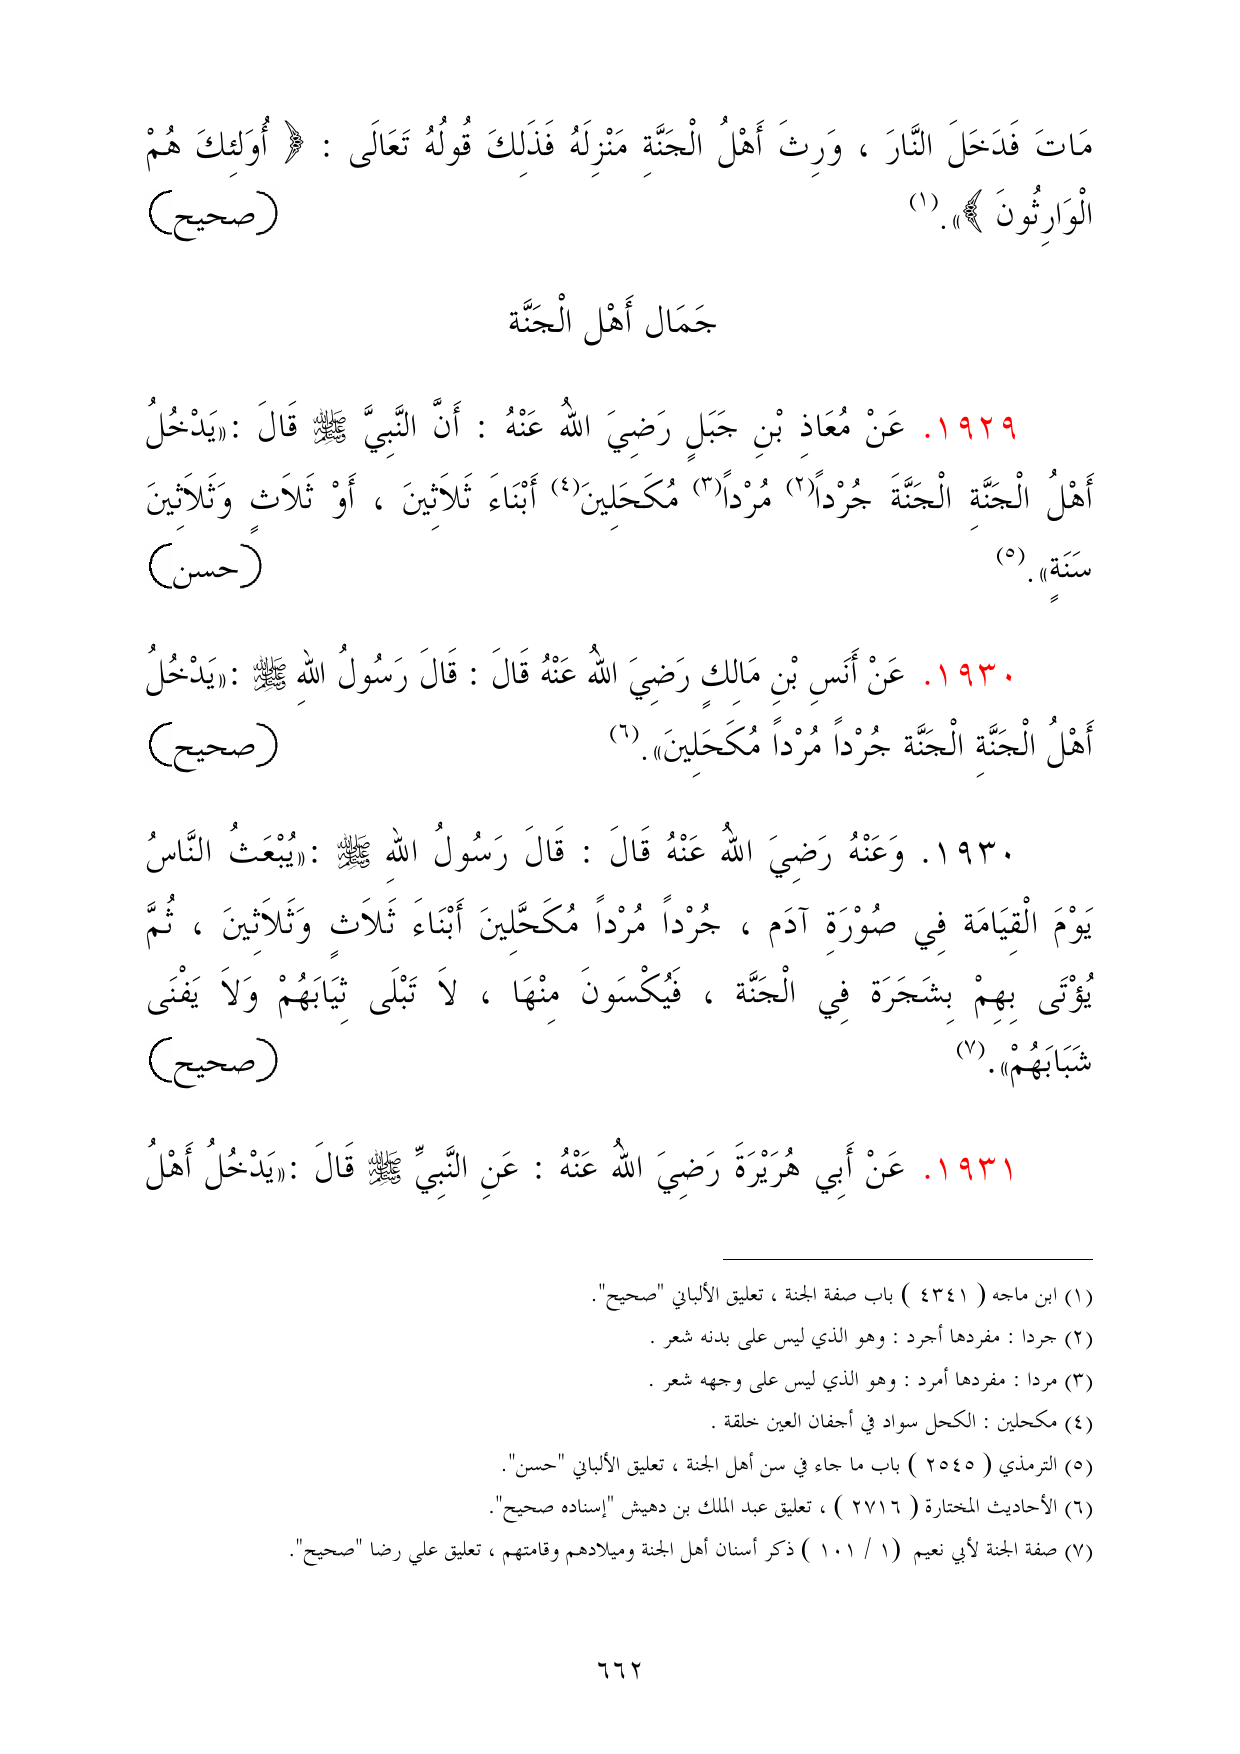 مَاتَ فَدَخَلَ النَّارَ ، وَرِثَ أَهْلُ الْجَنَّةِ مَنْزِلَهُ فَذَلِكَ قُولُهُ تَعَالَى : ﴿ أُوَلئِكَ هُمْ
الْوَارِثُونَ ﴾». (١) (صحيح)
جَمَال أَهْل الْجَنَّة
١٩٢٩. عَنْ مُعَاذِ بْنِ جَبَلٍ رَضِيَ اللهُ عَنْهُ : أَنَّ النَّبِيَّ ﷺ قَالَ :«يَدْخُلُ
أَهْلُ الْجَنَّةِ الْجَنَّةَ جُرْداً(٢) مُرْداً(٣) مُكَحَلِينَ(٤) أَبْنَاءَ ثَلاَثِينَ ، أَوْ ثَلاَثٍ وَثَلاَثِينَ
سَنَةٍ». (٥) (حسن)
١٩٣٠. عَنْ أَنَسِ بْنِ مَالِكٍ رَضِيَ اللهُ عَنْهُ قَالَ : قَالَ رَسُولُ اللهِ ﷺ :«يَدْخُلُ
أَهْلُ الْجَنَّةِ الْجَنَّة جُرْداً مُرْداً مُكَحَلِينَ». (٦) (صحيح)
١٩٣٠. وَعَنْهُ رَضِيَ اللهُ عَنْهُ قَالَ : قَالَ رَسُولُ اللهِ ﷺ :«يُبْعَثُ النَّاسُ
يَوْمَ الْقِيَامَة فِي صُوْرَةِ آدَم ، جُرْداً مُرْداً مُكَحَّلِينَ أَبْنَاءَ ثَلاَثٍ وَثَلاَثِينَ ، ثُمَّ
يُؤْتَى بِهِمْ بِشَجَرَة فِي الْجَنَّة ، فَيُكْسَونَ مِنْهَا ، لاَ تَبْلَى ثِيَابَهُمْ وَلاَ يَفْنَى
شَبَابَهُمْ». (٧) (صحيح)
١٩٣١. عَنْ أَبِي هُرَيْرَةَ رَضِيَ اللهُ عَنْهُ : عَنِ النَّبِيِّ ﷺ قَالَ :«يَدْخُلُ أَهْلُ
(١) ابن ماجه ( ٤٣٤١ ) باب صفة الجنة ، تعليق الألباني "صحيح".
(٢) جردا : مفردها أجرد : وهو الذي ليس على بدنه شعر .
(٣) مردا : مفردها أمرد : وهو الذي ليس على وجهه شعر .
(٤) مكحلين : الكحل سواد في أجفان العين خلقة .
(٥) الترمذي ( ٢٥٤٥ ) باب ما جاء في سن أهل الجنة ، تعليق الألباني "حسن".
(٦) الأحاديث المختارة ( ٢٧١٦ ) ، تعليق عبد الملك بن دهيش "إسناده صحيح".
(٧) صفة الجنة لأبي نعيم (١ / ١٠١ ) ذكر أسنان أهل الجنة وميلادهم وقامتهم ، تعليق علي رضا "صحيح".
٦٦٢